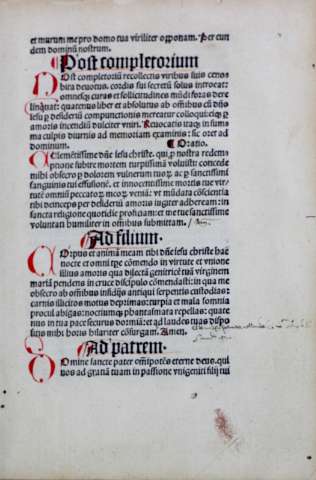 et murum me pro domo tua viriliter opponam. Per eun
dem dominũ nostrum.
Post completorium
POst completoriũ recollectis viribus suis ceno
bita deuotus. cordis sui secretũ solus introeat:
omnesq̃ curas et sollicitudines mũdi foras dere
linquat: quatenus liber et absolutus ab omnibus cũ dño
iesu ꝑ desiderũ compunctionis mereatur colloqui: eiꝯ q̃
amoris incendiũ dulciter vniri. Reuocatis itaqꝫ in sum
ma culpis diurnis ad memoriam examinis: sic oret ad
dominum. Oratio.
CLemẽtissime dñe iesu christe. qui ꝓ nostra redem
ptione subire mortem turpissimã voluisti: concede
mihi obsecro ꝑ dolorem vulnerum tuoꝝ ac ꝑ sanctissimi
sanguinis tui effusionẽ. et innocentissime mortis tue vir
tutẽ omniũ peccatoꝝ meoꝝ veniã: vt mũdata cõscientia
tibi deinceps per desideriũ amoris iugiter adheream: in
sancta religione quotidie proficiam: et me tue sanctissime
voluntati humiliter in omnibus submittam.
Ad filium.
COrpus et animã meam tibi dñe iesu christe hac
nocte et omni tpe cõmendo in virtute et vnione
illius amoris qua dilectã genitricẽ tuã virginem
mariã pendens in cruce discipulo cõmendasti: in qua me
obsecro ab omnibus insidijs antiqui serpentis custodias:
carnis illicitos motus deprimas: turpia et mala somnia
procul abigas: nocturnqꝫ phantasmata repellas: quate
nus in tua pace securus dormiã: et ad laudes tuas dispo
sitis mihi horis hilariter cõsurgam. Amen.
Ad patrem.
DOmine sancte pater omnipotẽs eterne deus. qui
nos ad gratiã tuam in passione vnigeniti filij tui